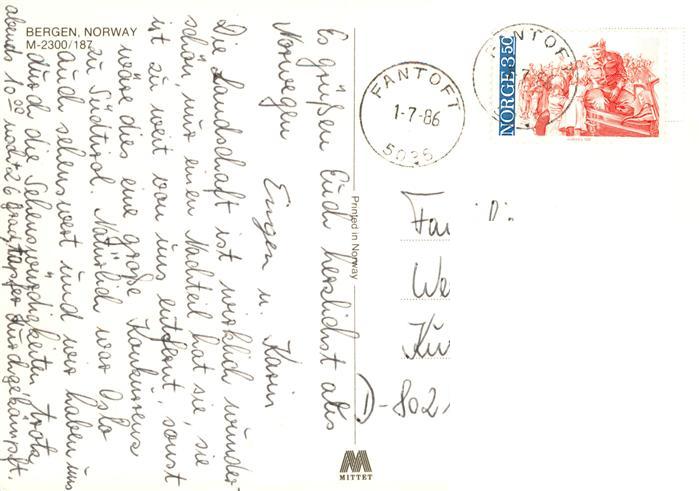 BERGEN, NORWAY
M-2300/187
Es grüßen Euch herzlichst aus
Norwegen Eugen u. Karin
Die Landschaft ist wirklich wunder-
schön, nur einen Nachteil hat sie, sie
ist zu weit von uns entfernt, sonst
wäre dies eine große Konkurrenz
zu Südtirol. Natürlich war Oslo
auch sehenswert und wir haben uns
durch die Sehenswürdigkeiten trotz
abends 10 00 noch 26 grad tapfer durchgekämpft.
Printed in Norway
MITTET
FANTOFT
1-7-86
5036
FANTOFT
7
NORGE 350
Fa
We
Ku
D-802